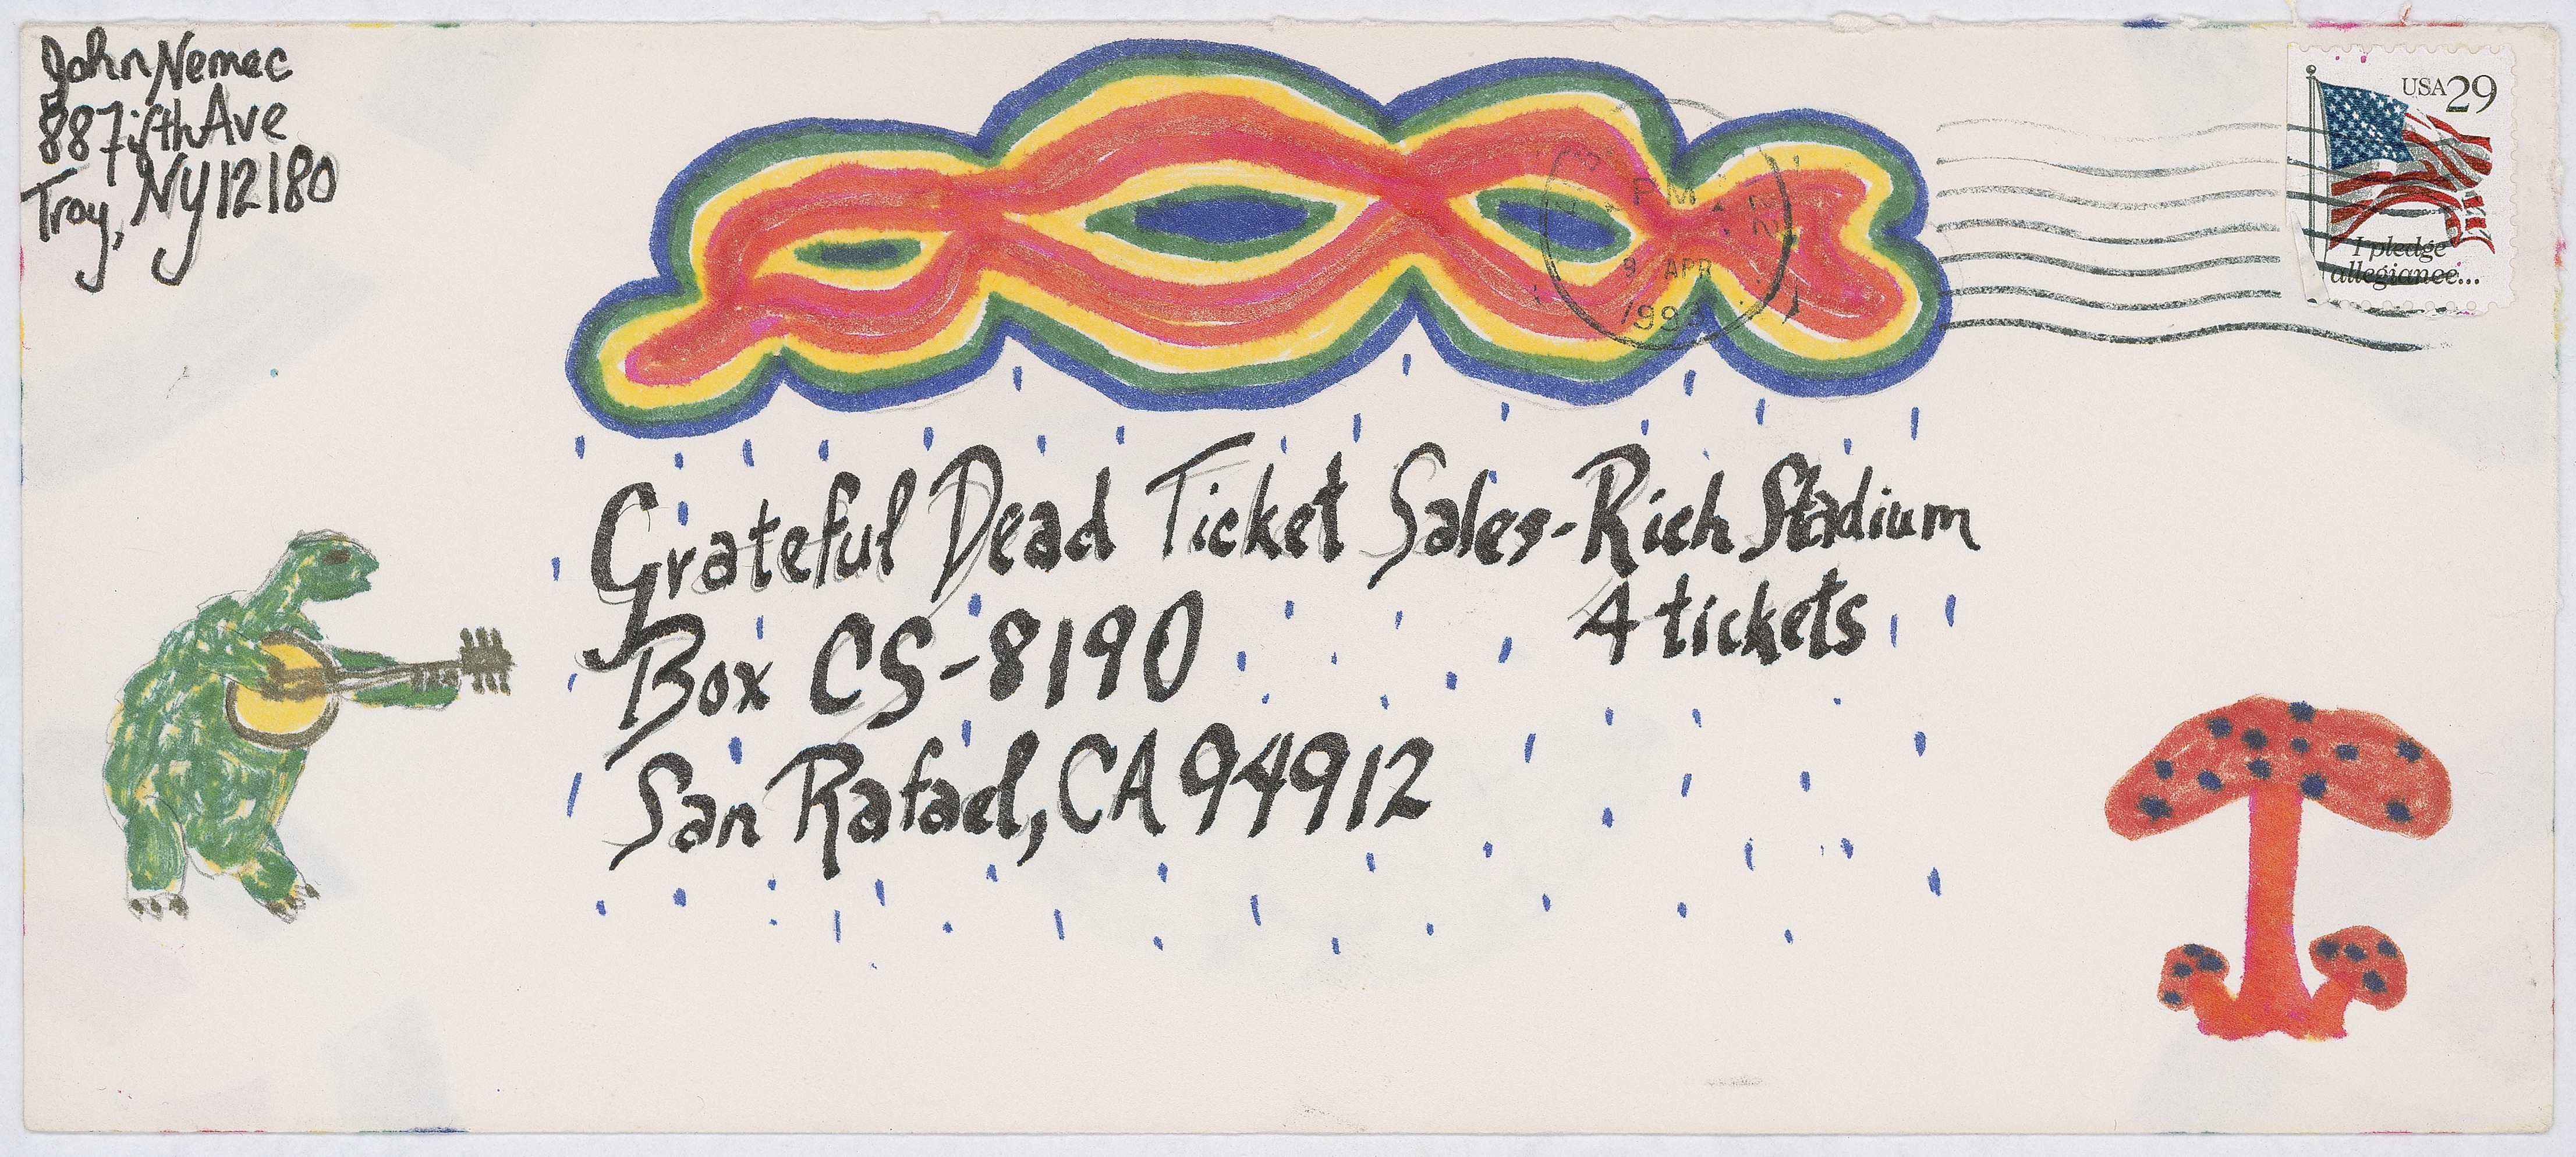 John Nemec
887 Fifth Ave
Troy, NY 12180
USA 29
I pledge
allegiance...
PM
9 APR
1993
Grateful Dead Ticket Sales-Rich Stadium
4 tickets
Box CS-8190
San Rafael, CA 94912